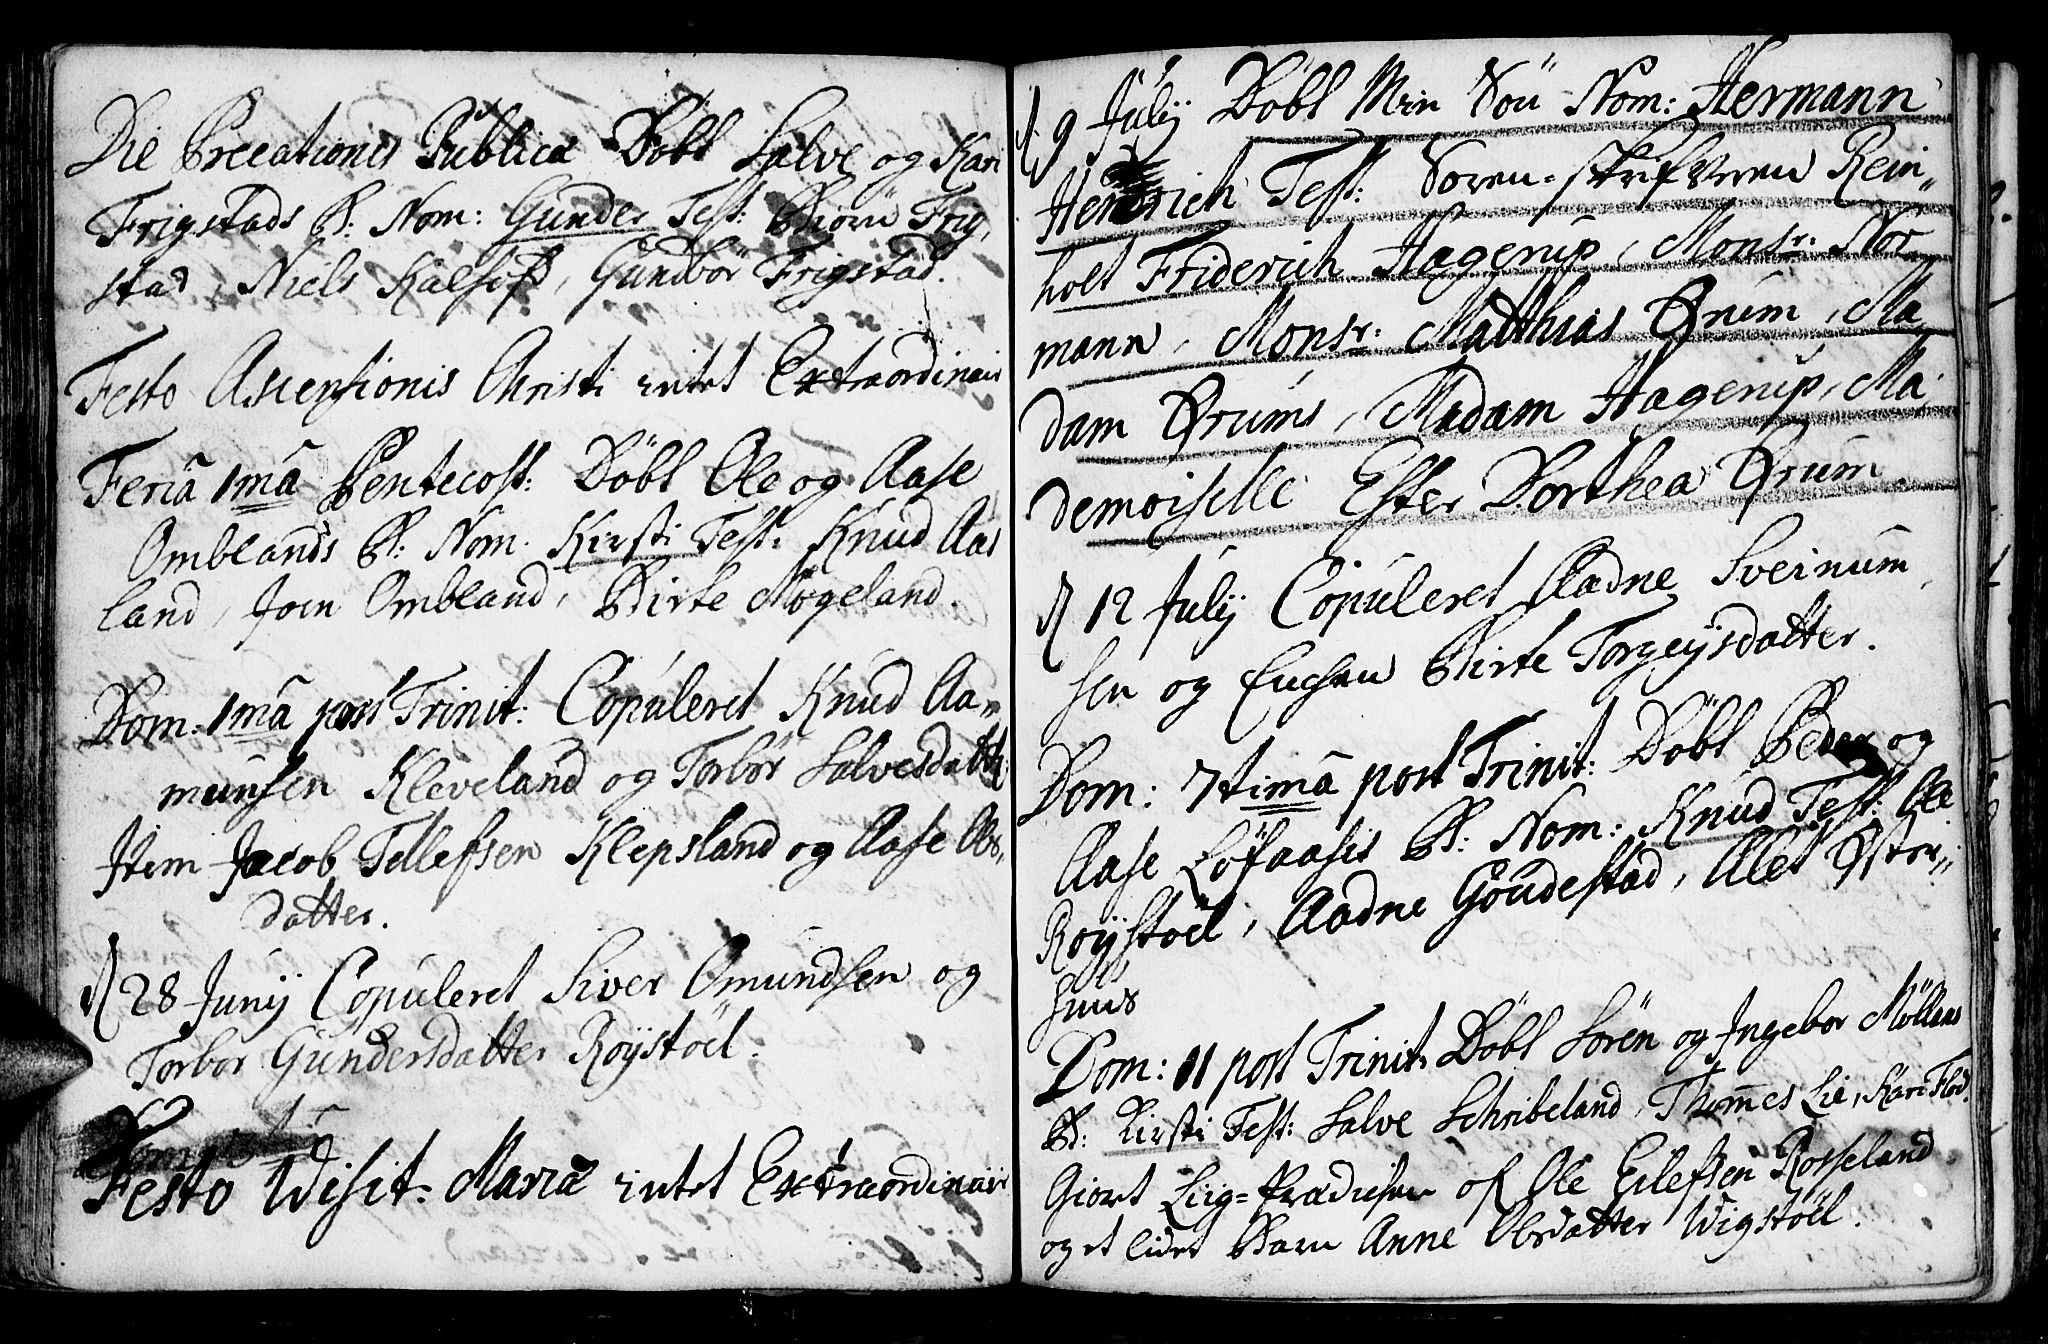 Die Precationis Publicæ Döbt Salve og Kari
Frigstads B: Nom: Gunder Test: Biörn Frig,
stad, Niels Kalhofs, Gunbör Frigstad.
Festo Ascensionis Christi intet Extraordinair
Feriâ 1mâ Pentecost: Döbt Ole og Aase
Omblands B: Nom. Kirsti Test: Knud Aas
land, Joen Ombland, Birte Mögeland.
Dom: 1mâ post Trinit: Copuleret Knud Aa„
munsen Kleveland og Torbör Salvesdatter
Item Jacob Tellefsen Klepsland og Aase Ols„
datter.
d 28 Junij Copuleret Siver Omundsen og
Torbor Gundersdatter Röystöel.
Festo Wisit: Mariæ intet Extraordinair
d. 9 Julij Döbt Min Sön Nom: Hermann
Hendrich Test: Soren-skrifveren Rein„
holt Friderich Hagerup, Monsr: Nor
mann, Monsr: Matthias Ørum, Ma
dam Ørums, Madam Hagerup, Ma
demoiselle Ester Dorthea Ørum.
d 12 Julij Copuleret Aadne Sveinum
sen og Enchen Birte Torgeysdatter.
Dom: 7timâ post Trinit: Döbt Peder og
Aase Löfaasis B: Nom: Knud Test: Ole
Roystöel, Aadne Goudestad, Alet Øster„
huus
Dom: 11 post Trinit: Döbt Sören og Ingebor Möllens
B: Kirsti Test: Salve Schribeland, Thommes Lie, Kari Flod.
Giort Liig-Prædichen of Ole Eilefsen Rosseland
og et lidet Barn Anne Olsdatter Wigstöel.